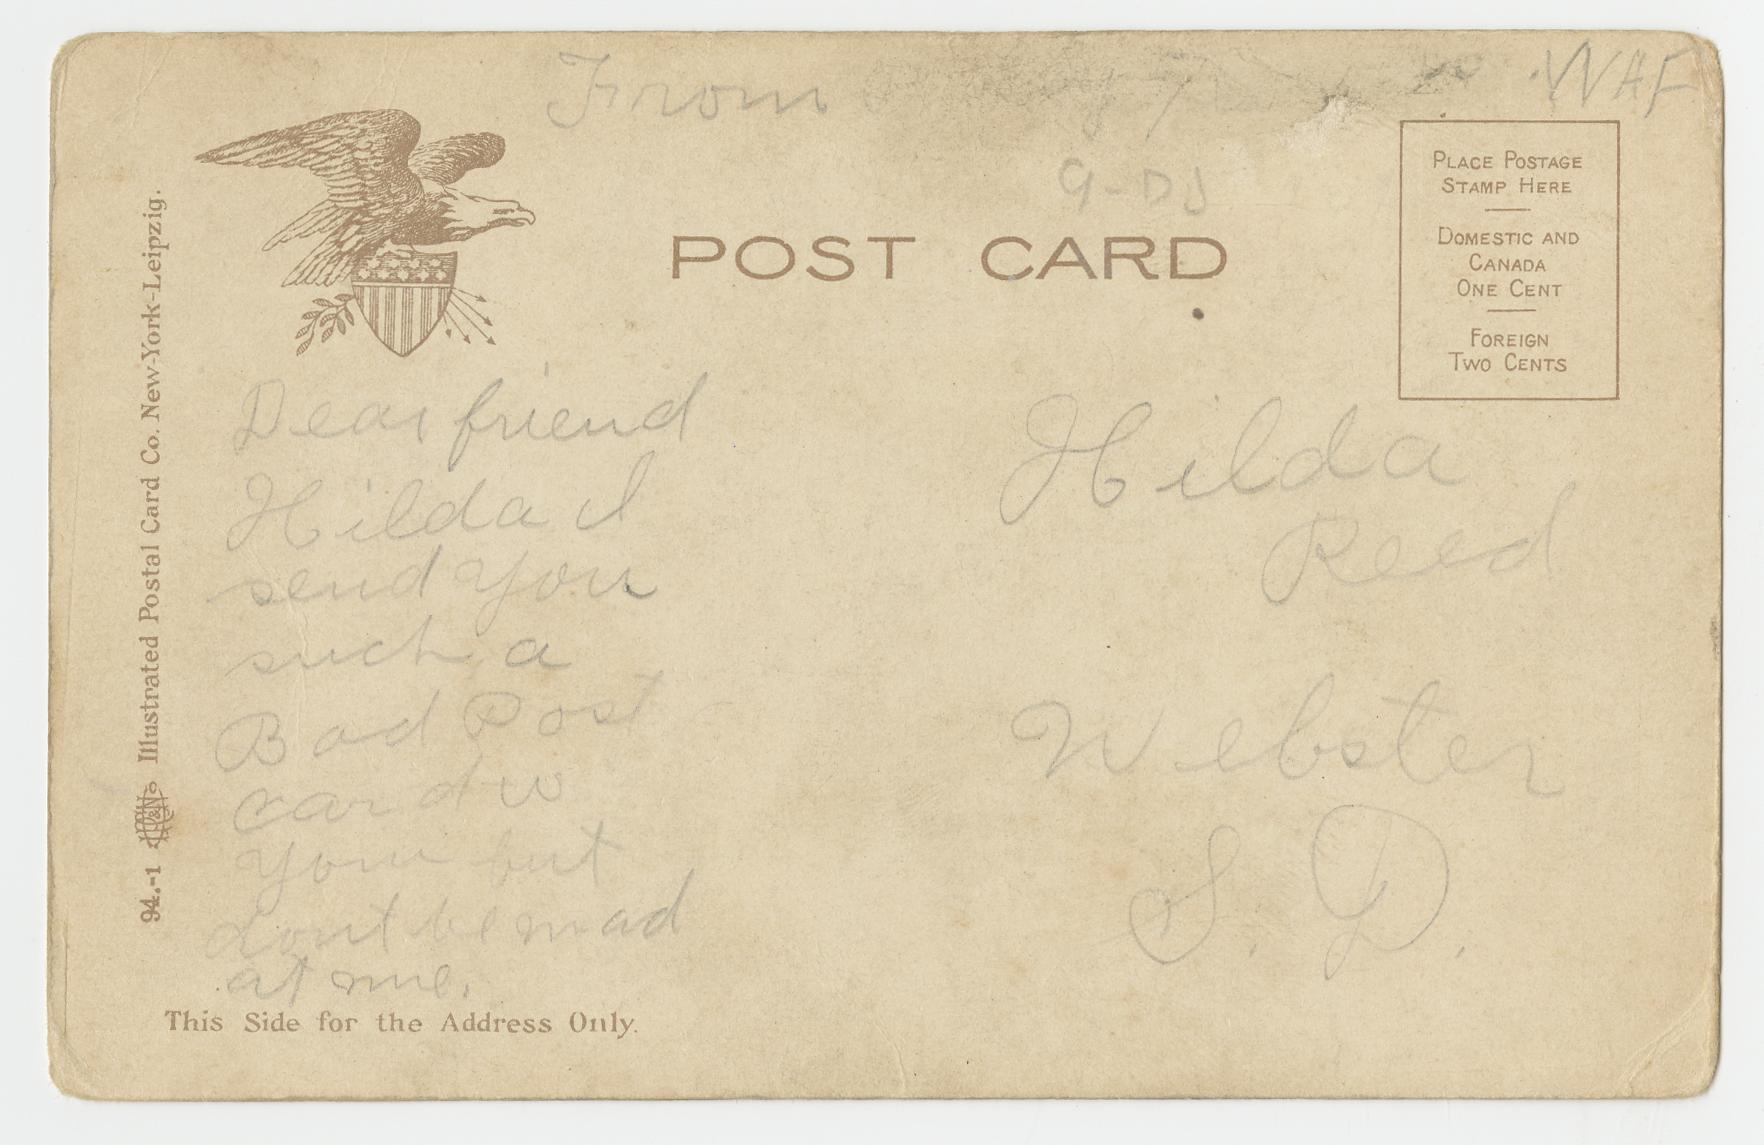 From
WAF
9-DJ
POST CARD
PLACE POSTAGE
STAMP HERE
DOMESTIC AND
CANADA
ONE CENT
FOREIGN
TWO CENTS
94.-1 Illustrated Postal Card Co. New-York-Leipzig.
Dear friend
Hilda I
send you
such a
Bad Post
card to
you but
dont be mad
at me.
Hilda
Reed
Webster
S. D.
This Side for the Address Only.